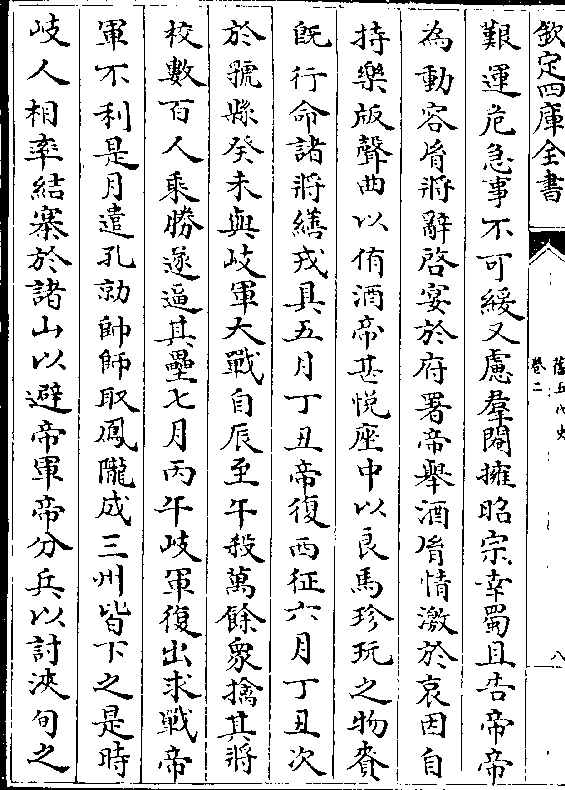 欽定四庫全書
舊五代史
卷二
八
艱運危急事不可緩又慮羣閹擁昭宗幸蜀且告帝帝
為動容胤將辭啓宴於府署帝舉酒胤情激於衷因自
持樂版聲曲以侑酒帝甚悦座中以良馬珍玩之物賚
既行命諸將繕戎具五月丁丑帝復西征六月丁丑次
於虢縣癸未與岐軍大戰自辰至午殺萬餘衆擒其將
校數百人乘勝遂逼其壘七月丙午岐軍復出求戰帝
軍不利是月遣孔勍帥師取鳳隴成三州皆下之是時
岐人相率結寨於諸山以避帝軍帝分兵以討浹旬之